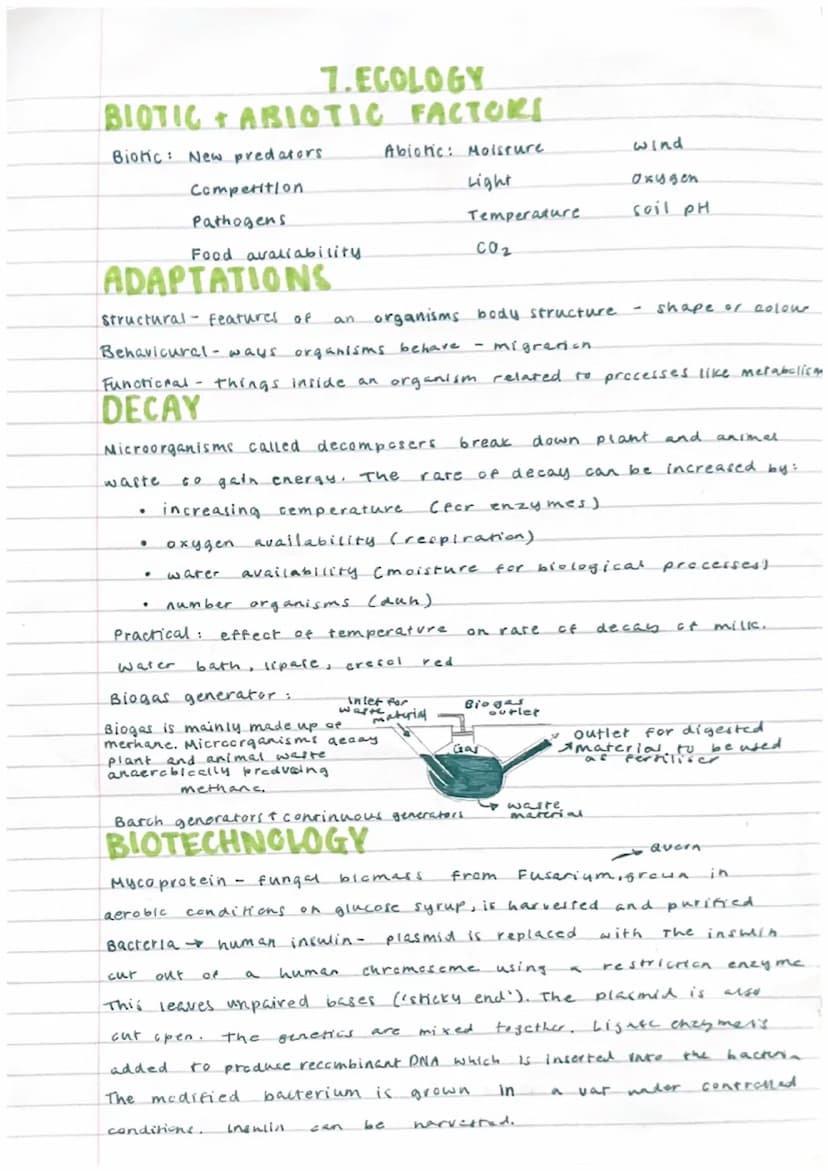 7. ECOLOGY
BIOTIC + ABIOTIC FACTORS
Biotic: New predators Abiotic: Moisture wind
Competition Light oxygen
Pathogens Temperature soil pH
Food avaliability CO2
ADAPTATIONS
Structural - features of an organisms body structure - shape or colour
Behavioural - ways organisms behave - migration
Functional - things inside an organism related to processes like metabolism
DECAY
Microorganisms called decomposers break down plant and animal
waste to gain energy. The rate of decay can be increased by:
• increasing temperature (for enzymes)
• oxygen availability (respiration)
• water availability (moisture for biological processes)
• number organisms (duh)
Practical: effect of temperature on rate of decay of milk.
Water bath, lipase, cresol red
Biogas generator:
Inlet for
waste
material
Biogas
outlet
Gas
outlet for digested
material to be used
as fertiliser
waste
material
Biogas is mainly made up of
methane. Microorganisms decay
plant and animal waste
anaerobically producing
methane.
Batch generators + continuous generators
BIOTECHNOLOGY
→ quorn
Mycoprotein - fungal biomass from Fusarium, grown in
aerobic conditions on glucose syrup, is harvested and purified
Bacteria → human insulin - plasmid is replaced with the insulin
cut out of a human chromosome using a restriction enzyme
This leaves unpaired bases ('sticky end'). The plasmid is also
cut open. The genetics are mixed together. Ligase enzyme is
added to produce recombinant DNA which is inserted into the bacteria
The modified bacterium is grown in a vat under controlled
conditions. Insulin can be harvested.